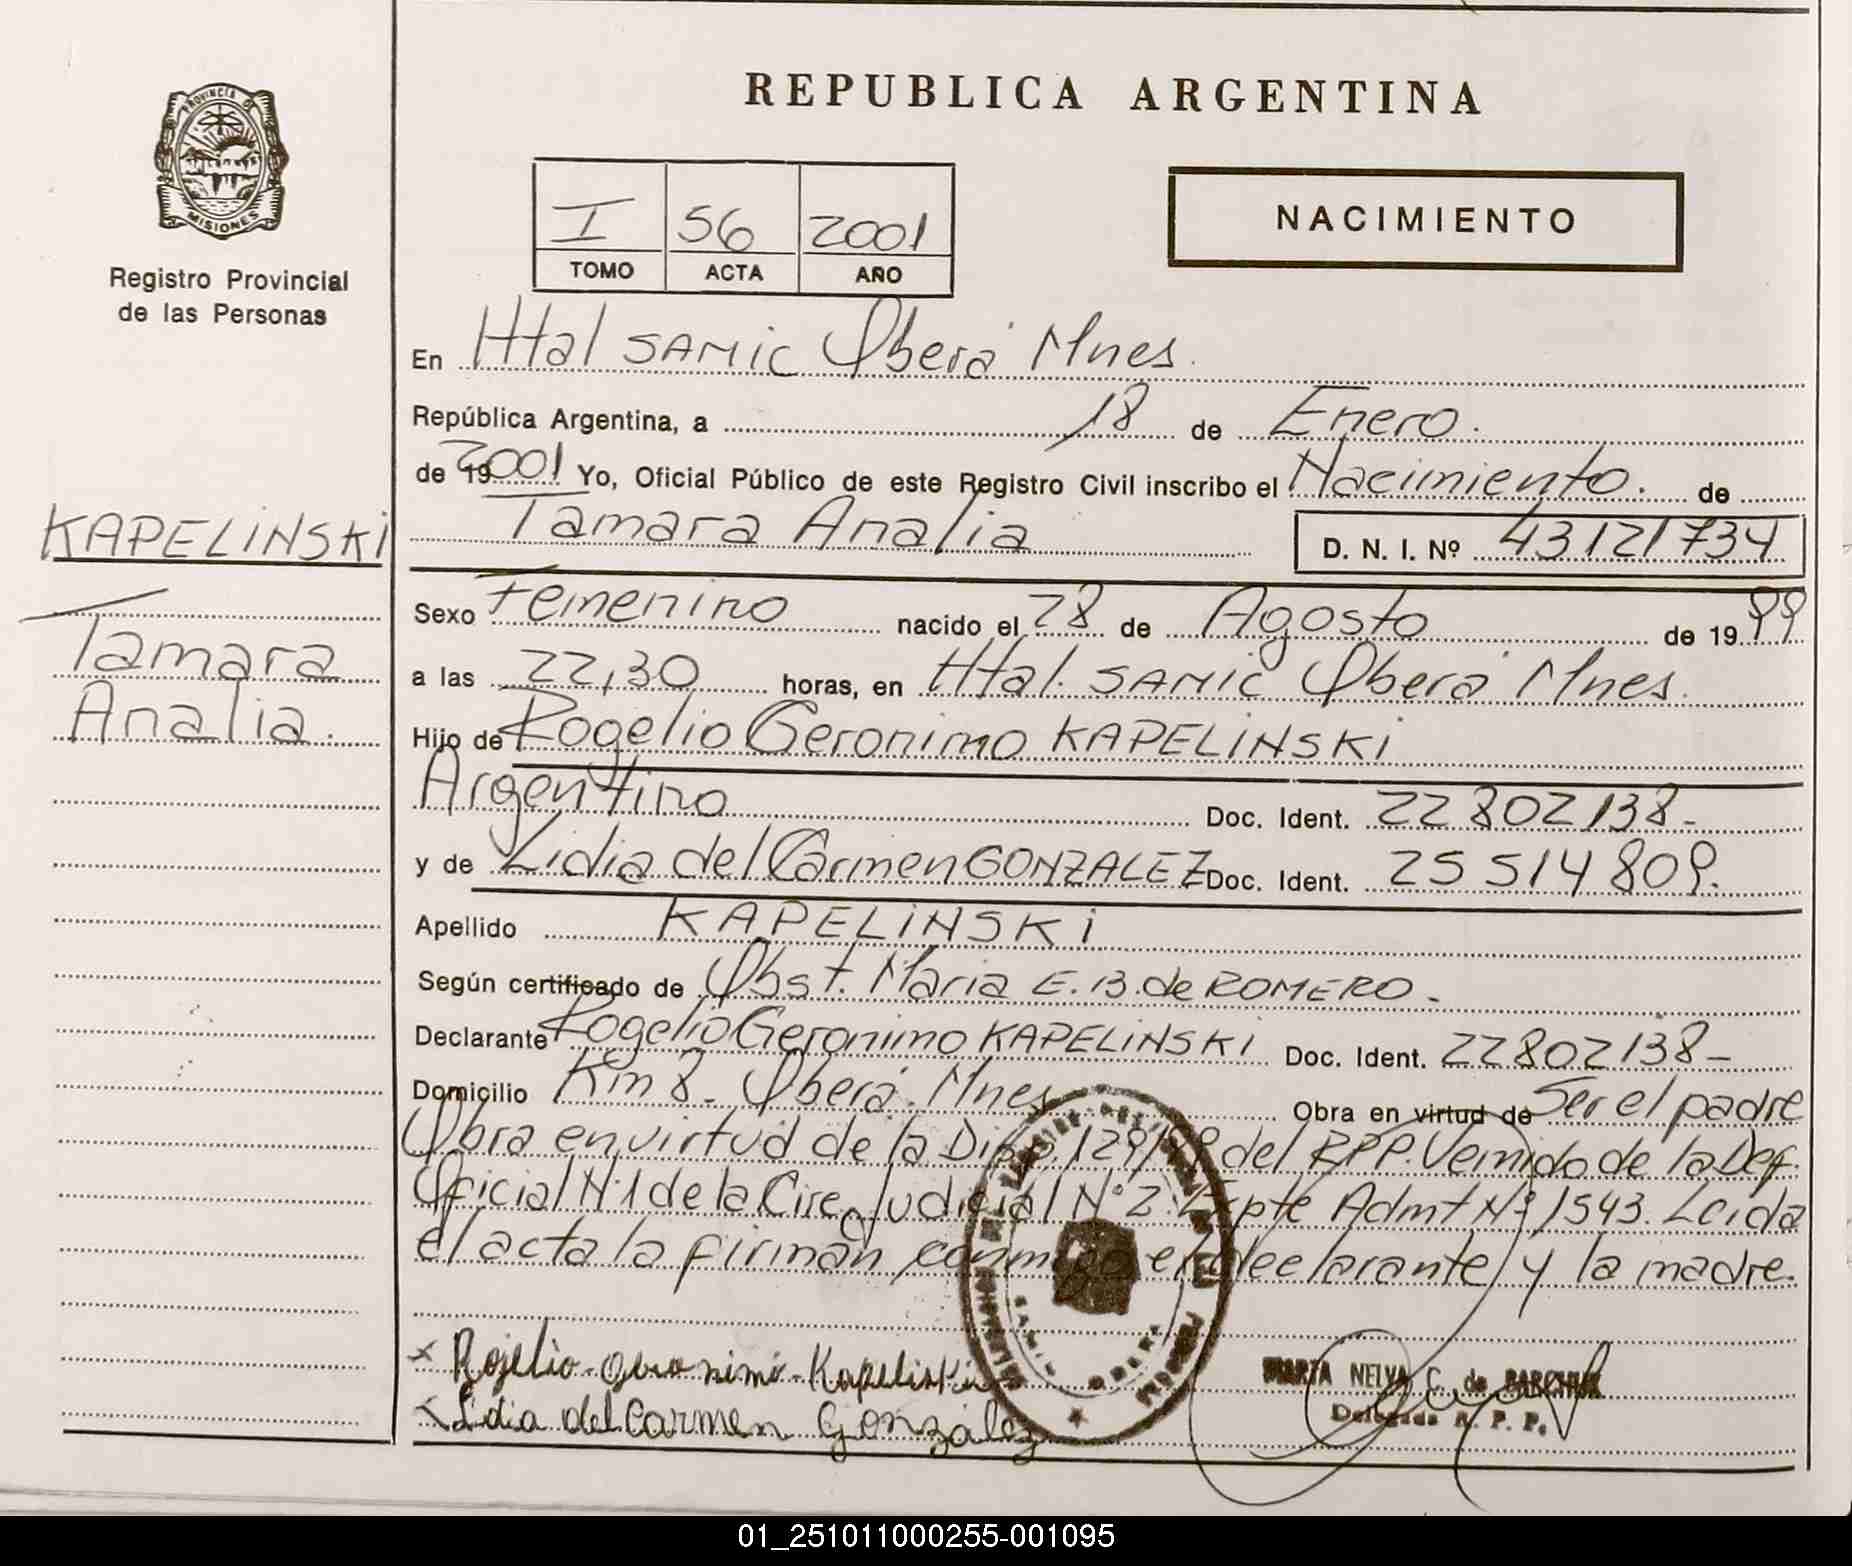 REPUBLICA ARGENTINA
PROVINCIA DE
MISIONES
Registro Provincial
de las Personas
I 56 2001
TOMO ACTA AÑO
NACIMIENTO
En Htal SAMIC Oberá Mnes.
República Argentina, a 18 de Enero.
de 19 2001 Yo, Oficial Público de este Registro Civil inscribo el Nacimiento. de
Tamara Analia D. N. I. Nº 43121734
KAPELINSKI
Tamara
Analia.
Sexo Femenino nacido el 28 de Agosto de 19 99
a las 22,30 horas, en Htal. SAMIC Oberá Mnes.
Hijo de Rogelio Geronimo KAPELINSKI
Argentino Doc. Ident. 22802138-
y de Lidia del Carmen GONZALEZ Doc. Ident. 25514809.
Apellido KAPELINSKI
Según certificado de Obst. Maria E. B. de ROMERO.
Declarante Rogelio Geronimo KAPELINSKI Doc. Ident. 22802138-
Domicilio Km 8- Oberá. Mnes Obra en virtud de Ser el padre
Obra en virtud de la Disp. 129/99 del RPP. Venido de la Def.
Oficial Nº1 de la Circ. Judicial Nº 2. Expte Admt Nº 1543. Leida
el acta la firman conmigo el declarante y la madre.
x Rojelio Kapeliski
x Lidia del Carmen González
MARTA NELVA C. de
Delegada R. P. P.
01_251011000255-001095